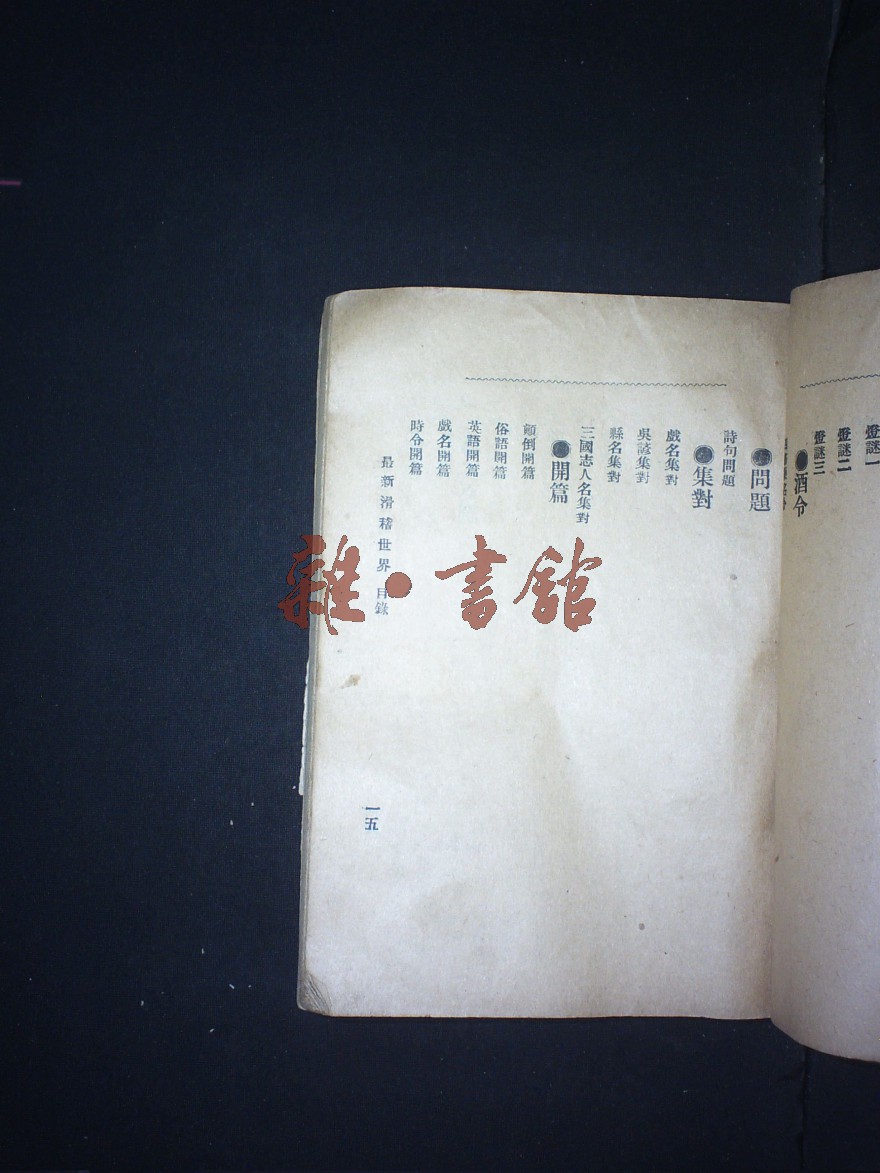 燈謎一
燈謎二
燈謎三
●酒令
●問題
詩句問題
●集對
戲名集對
吳諺集對
縣名集對
三國志人名集對
●開篇
顛倒開篇
俗語開篇
英語開篇
戲名開篇
時令開篇
最新滑稽世界 目錄
一五
雜·書館